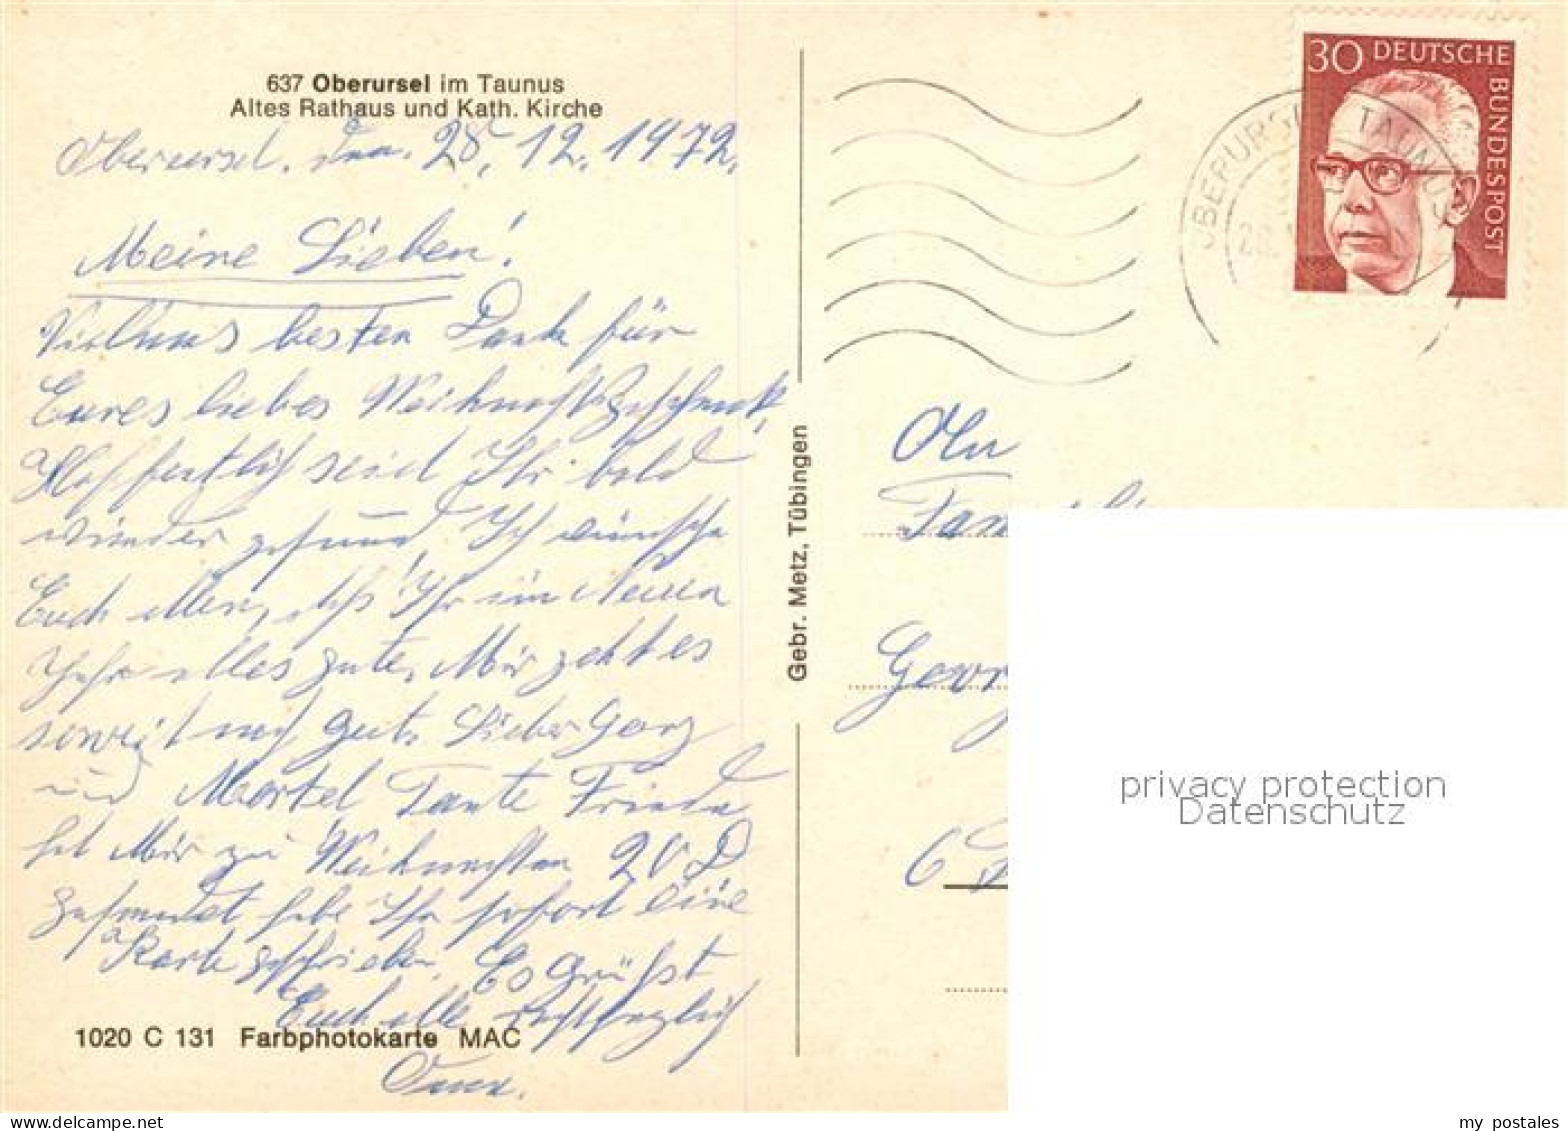 637 Oberursel im Taunus
Altes Rathaus und Kath. Kirche
Oberursel. den. 28. 12. 1972.
Meine Lieben!
Vielmals besten Dank für
Eures liebes Weihnachtsgeschenk,
Hoffentlich seid Ihr bald
wieder gesund, Ich wünsche
Euch allen, daß Ihr im Neuen
Jahr alles gute, Mir geht es
soweit noch gut. Lieber Georg
und Martel Tante Frieda
hat Mir zu Weihnachten 20 D
gesandt habe Ihr sofort eine
Karte geschrieben. Es Grüßt
Euch alle recht herzlich
1020 C 131 Farbphotokarte MAC
Gebr. Metz, Tübingen
30 DEUTSCHE BUNDESPOST
OBERURSEL TAUNUS
An
Geor
6
privacy protection
Datenschutz
my postales